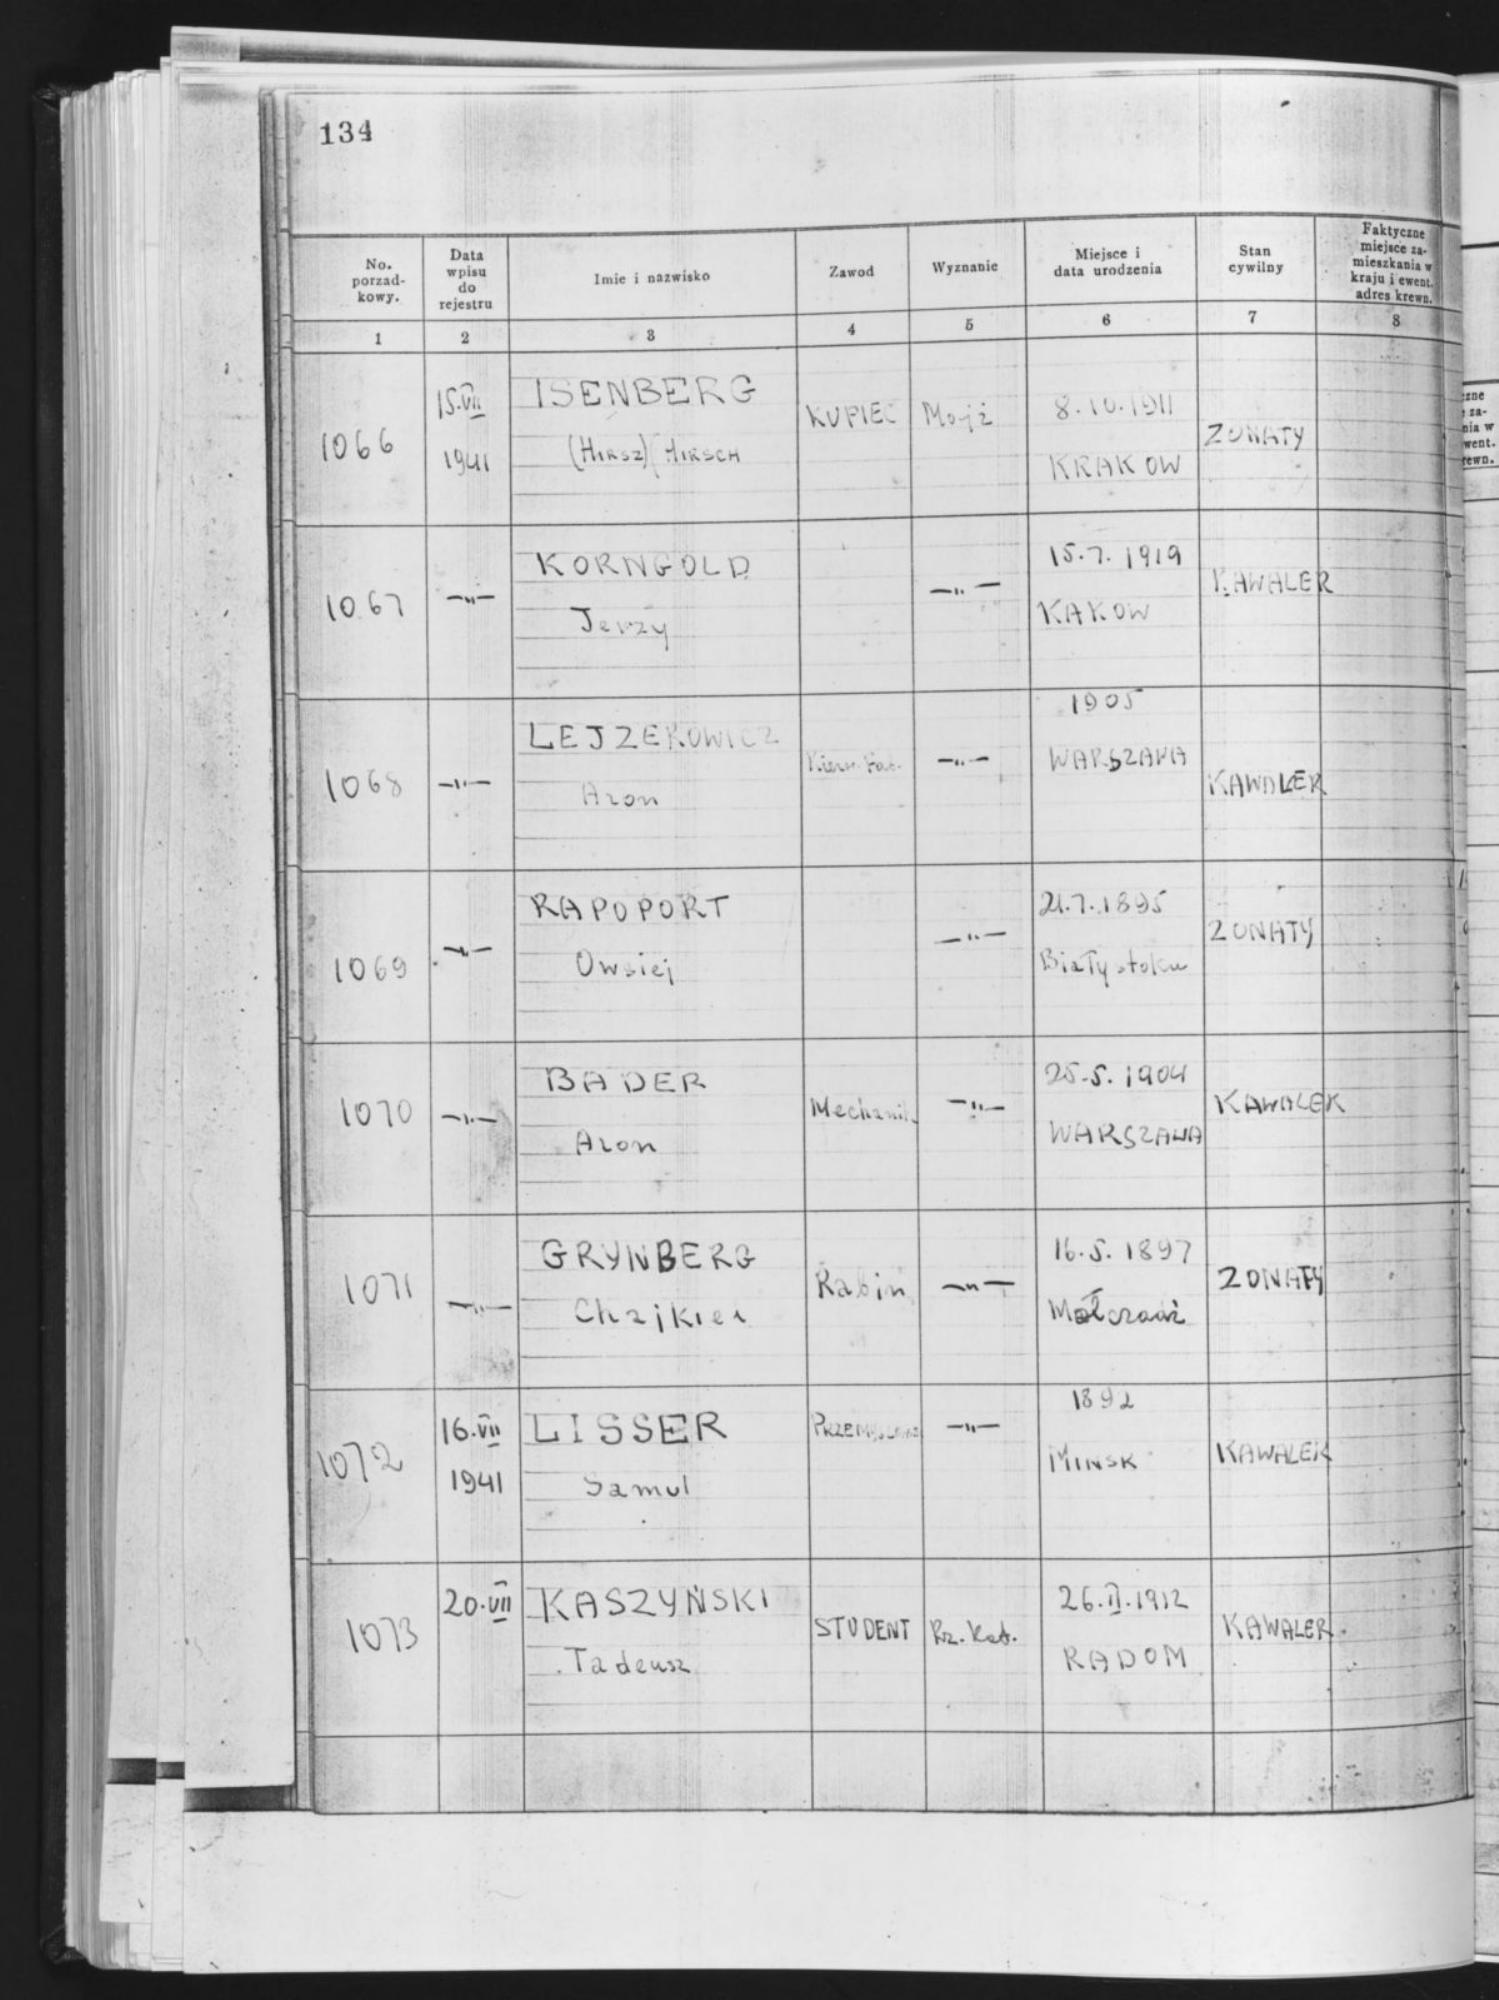 134
No. porzad- kowy.
Data wpisu do rejestru
Imie i nazwisko
Zawod
Wyznanie
Miejsce i data urodzenia
Stan cywilny
Faktyczne miejsce za- mieszkania w kraju i ewent. adres krewn.
1 2 3 4 5 6 7 8
1066 15.VII 1941 ISENBERG (HIRSZ) HIRSCH KUPIEC Mojż 8.10.1911 KRAKOW ZONATY
1067 —"— KORNGOLD Jerzy —"— 15.7.1919 KAKOW KAWALER
1068 —"— LEJZEROWICZ Aron —"— 1905 WARSZAWA KAWALER
1069 —"— RAPOPORT Owsiej —"— 21.7.1895 Białystoku ZONATY
1070 —"— BADER Aron Mechanik —"— 25.5.1904 WARSZAWA KAWALER
1071 —"— GRYNBERG Chajkiel Rabin —"— 16.5.1897 Mołczadź ZONATY
1072 16.VII 1941 LISSER Samul —"— 1892 MINSK KAWALER
1073 20.VII KASZYŃSKI Tadeusz STUDENT Rz. Kat. 26.II.1912 RADOM KAWALER